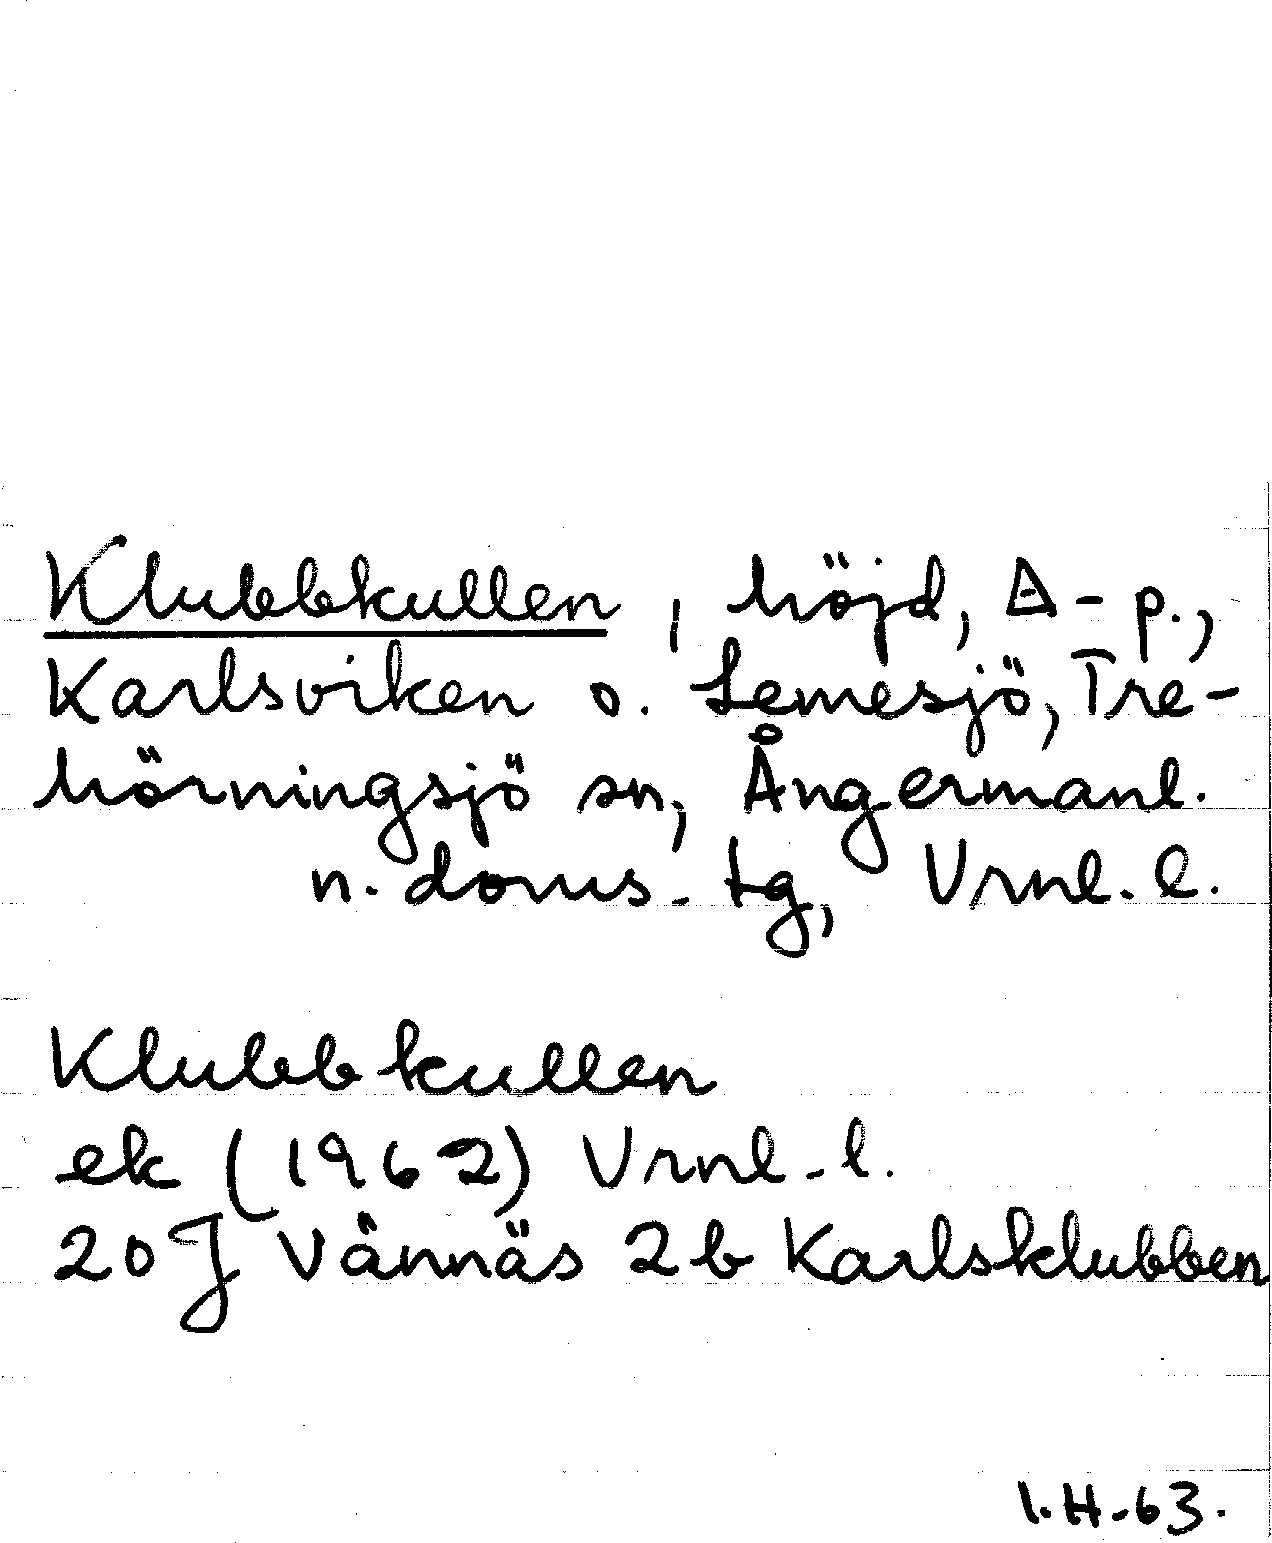 Klubbkullen, höjd, △-p.,
Karlsviken o. Lemesjö, Tre-
hörningsjö sn, Ångermanl.
n. doms. tg, Vrnl. l.
Klubbkullen
ek (1962) Vrnl. l.
20 J Vännäs 2b Karlsklubben
I.H.63.